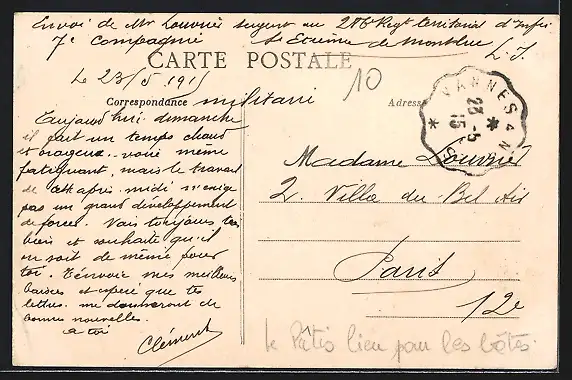 Envoi de Mr Louvriés sergent au 286e Regt territorial d'Infie
7e Compagnie St Etienne de Montluc
L. I.
CARTE POSTALE
Le 23/5 1915
10
Correspondance militaire
Adresse
VANNES A N
23 - 5
15
Aujourd'hui dimanche
il fait un temps chaud
et orageux. voire même
fatiguant, mais le travail
de cette après-midi n'exige
pas un grand développement
de forces. Vais toujours très
bien et souhaite qu'il
en soit de même pour
toi. T'envoie mes meilleurs
baisers et espère que tes
lettres me donneront de
bonnes nouvelles.
a toi
Clément
Madame Louvriés
2. Villa du Bel Air
Paris
12e
le Pâtis lieu pour les bôtes.